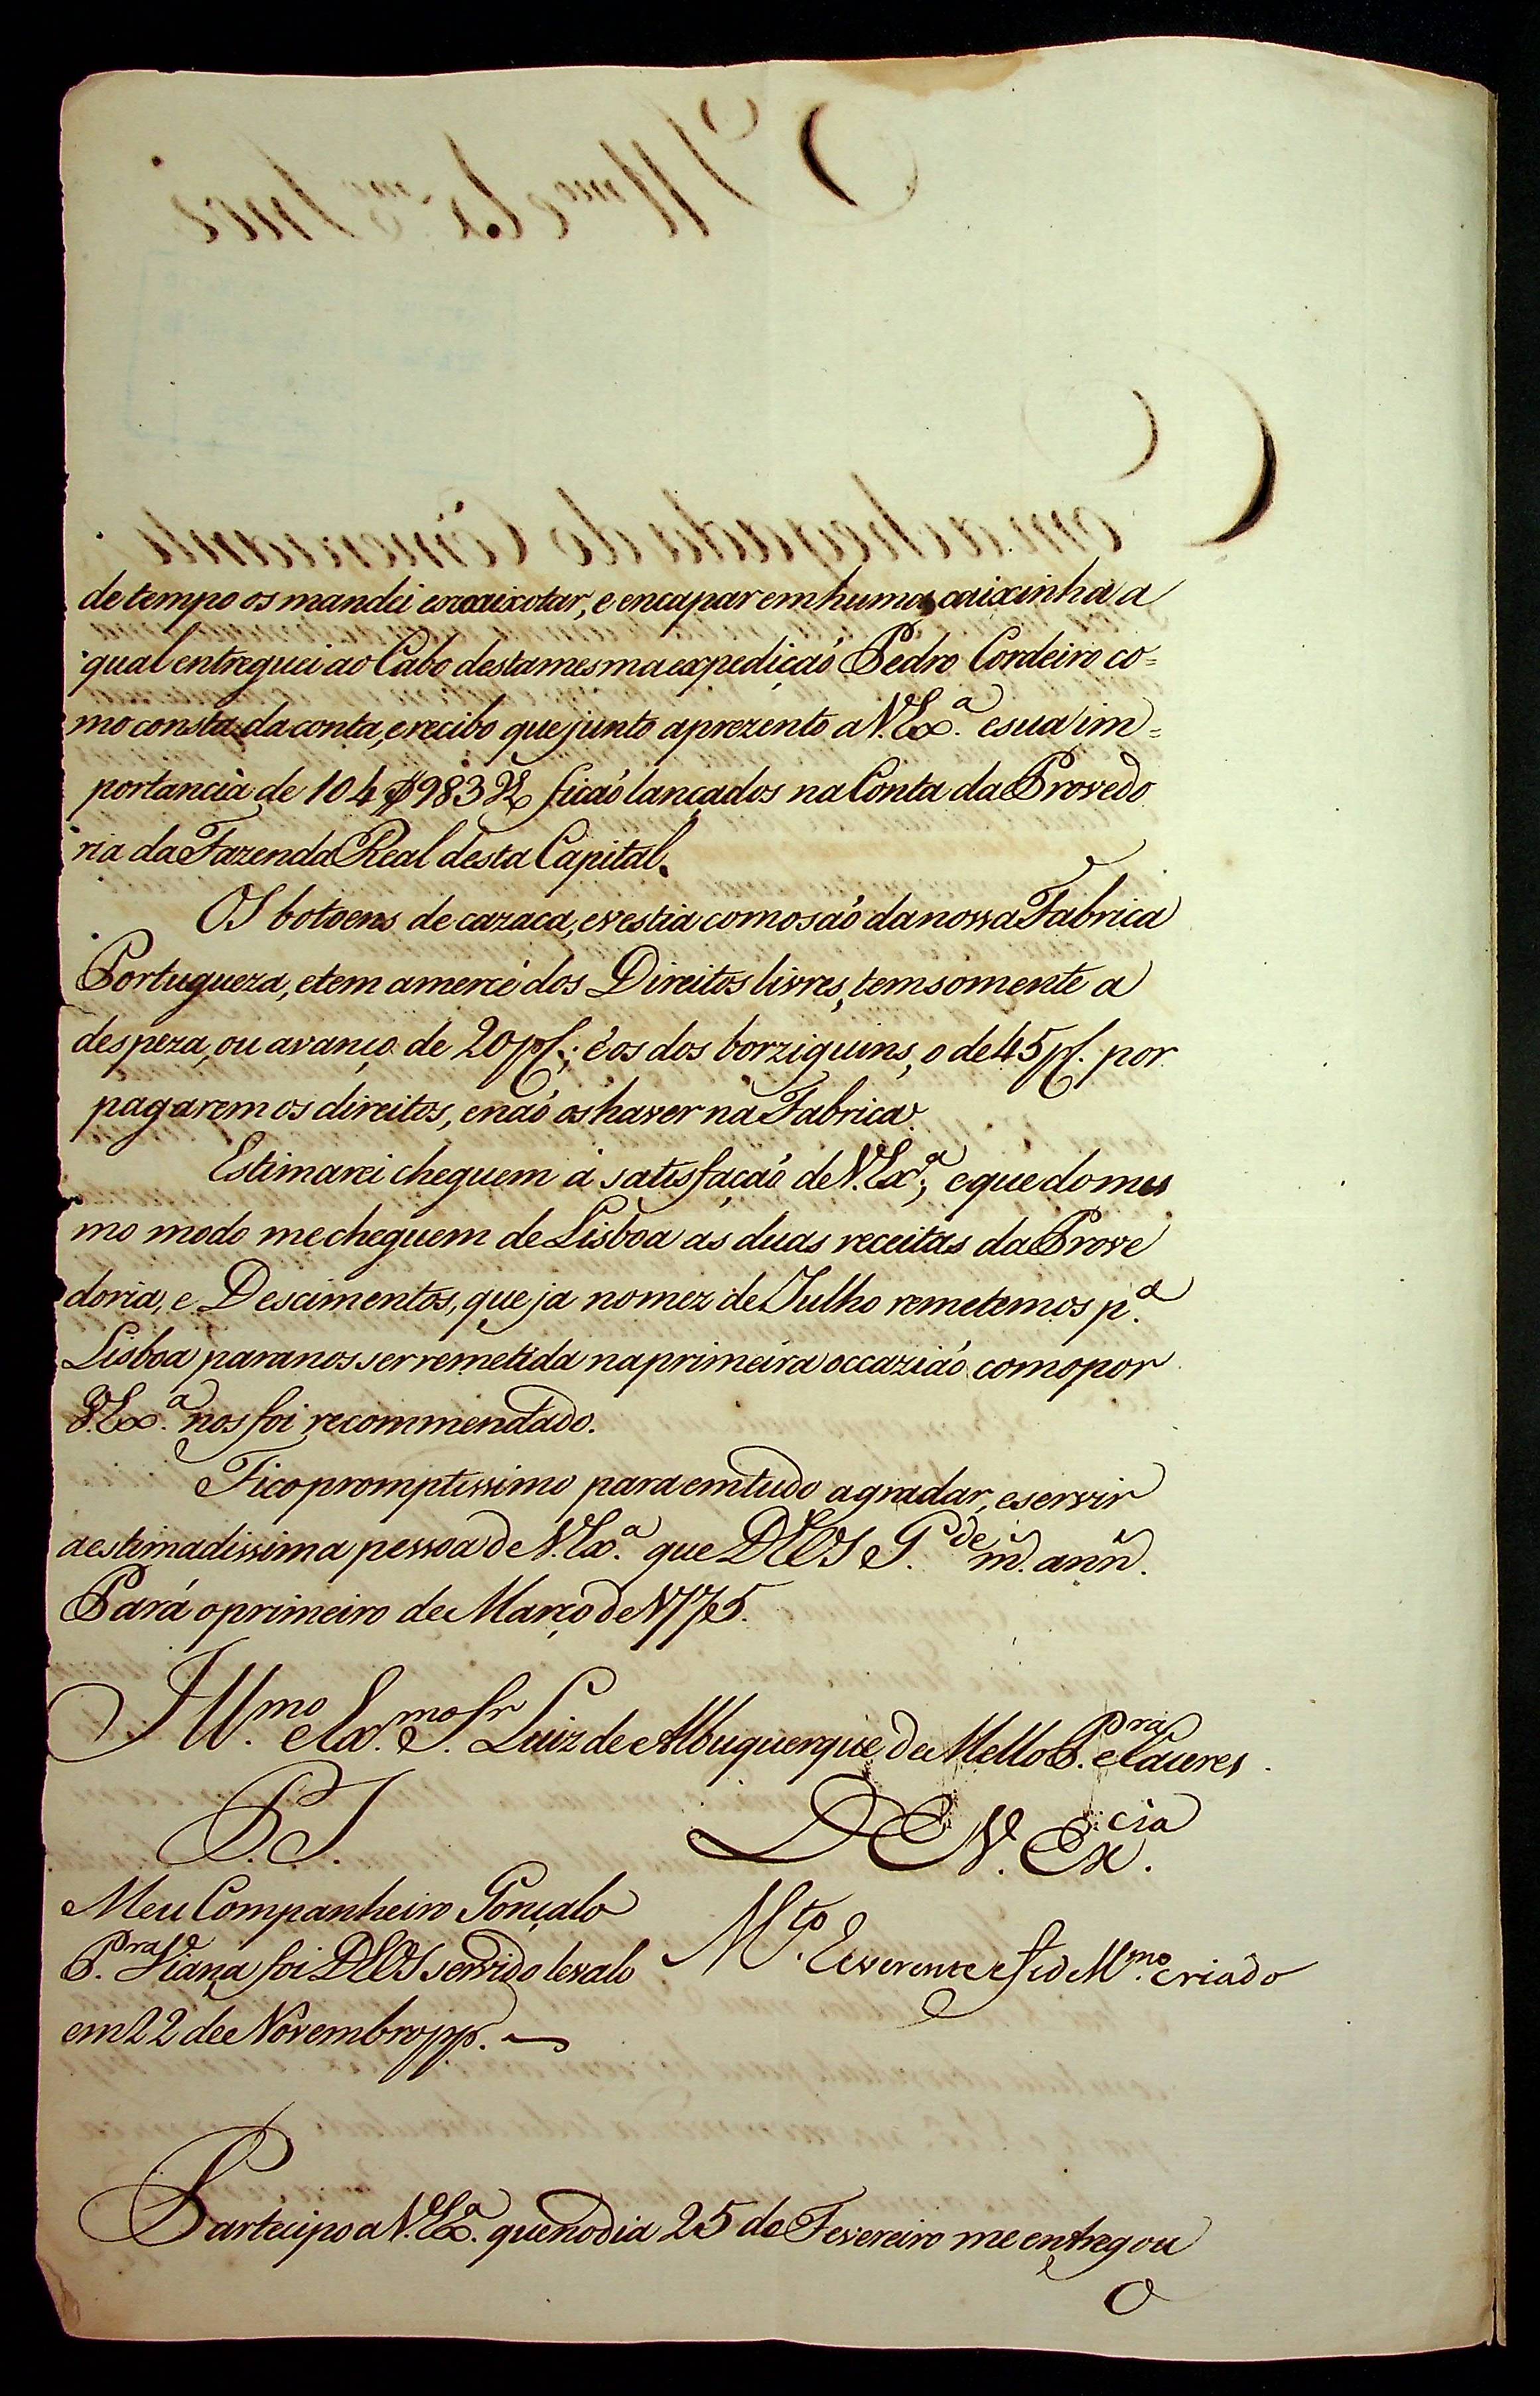 de tempo os mandei encaixotar, e encapar em huma caixinha a
qual entreguei ao Cabo desta mesma expedição Pedro Cordeiro co=
mo consta da conta, e recibo que junto aprezento a V. Ex.ª e sua im=
portancia de 104$983 R.s ficão lançados na Conta da Provedo
ria da Fazenda Real desta Capital.
OS botoens de cazaca, e vestia como são da nossa Fabrica
Portugueza, e tem a mercê dos Direitos livres, tem somente a
despeza, ou avanço de 20 p.; é os dos borziguins, o de 45 p. por
pagarem os direitos, e não os haver na Fabrica.
Estimarei cheguem á satisfação de V. Ex.ª; e que do mes
mo modo me cheguem de Lisboa as duas receitas da Prove
doria, e Descimentos, que ja no mez de Julho remetemos p.ª
Lisboa para nos ser remetida na primeira occazião como por
V. Ex.ª nos foi recommendado.
Fico promptissimo para em tudo agradar, e servir
a estimadissima pessoa de V. Ex.ª que DEOS G.de m. ann.
Pará o primeiro de Março de 1775.
Ill.mo e Ex.mo S.r Luiz de Albuquerque de Mello P.ra e Caceres
P. S.
DE V. Ex.cia
Meu Companheiro Gonçalo
P.ra Viana foi DEOS servido levalo
em 22 de Novembro pp.
M.to Reverente e fidelm.mo criado
Partecipo a V. Ex.ª que no dia 25 de Fevereiro me entregou
O